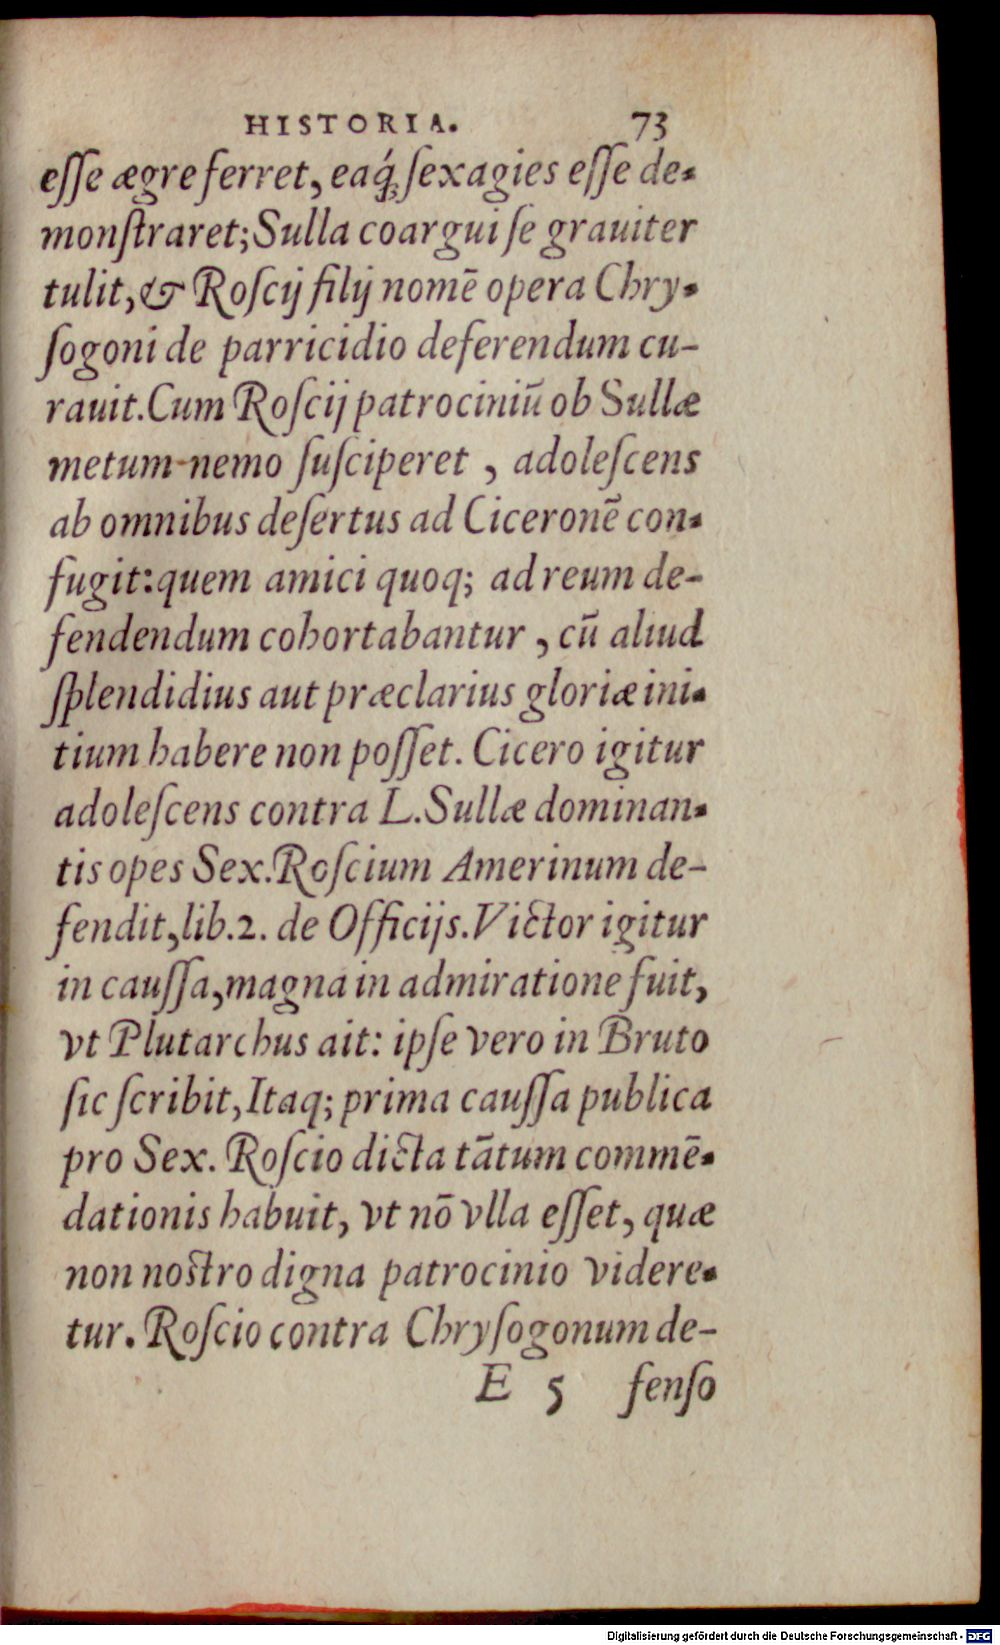 HISTORIA. 73
eſſe ægre ferret, eaq́; ſexagies eſſe de-
monſtraret; Sulla coargui ſe grauiter
tulit, & Roſcij filij nomē opera Chry-
ſogoni de parricidio deferendum cu-
rauit. Cum Roſcij patrociniū ob Sullæ
metum nemo ſuſciperet, adoleſcens
ab omnibus deſertus ad Ciceronē con-
fugit: quem amici quoq; ad reum de-
fendendum cohortabantur, cū aliud
ſplendidius aut præclarius gloriæ ini-
tium habere non poſſet. Cicero igitur
adoleſcens contra L. Sullæ dominan-
tis opes Sex. Roſcium Amerinum de-
fendit, lib. 2. de Officijs. Victor igitur
in cauſſa, magna in admiratione fuit,
vt Plutarchus ait: ipſe vero in Bruto
ſic ſcribit, Itaq; prima cauſſa publica
pro Sex. Roſcio dicta tātum commē-
dationis habuit, vt nō vlla eſſet, quæ
non noſtro digna patrocinio videre-
tur. Roſcio contra Chryſogonum de-
E 5 fenſo
Digitalisierung gefördert durch die Deutsche Forschungsgemeinschaft - DFG